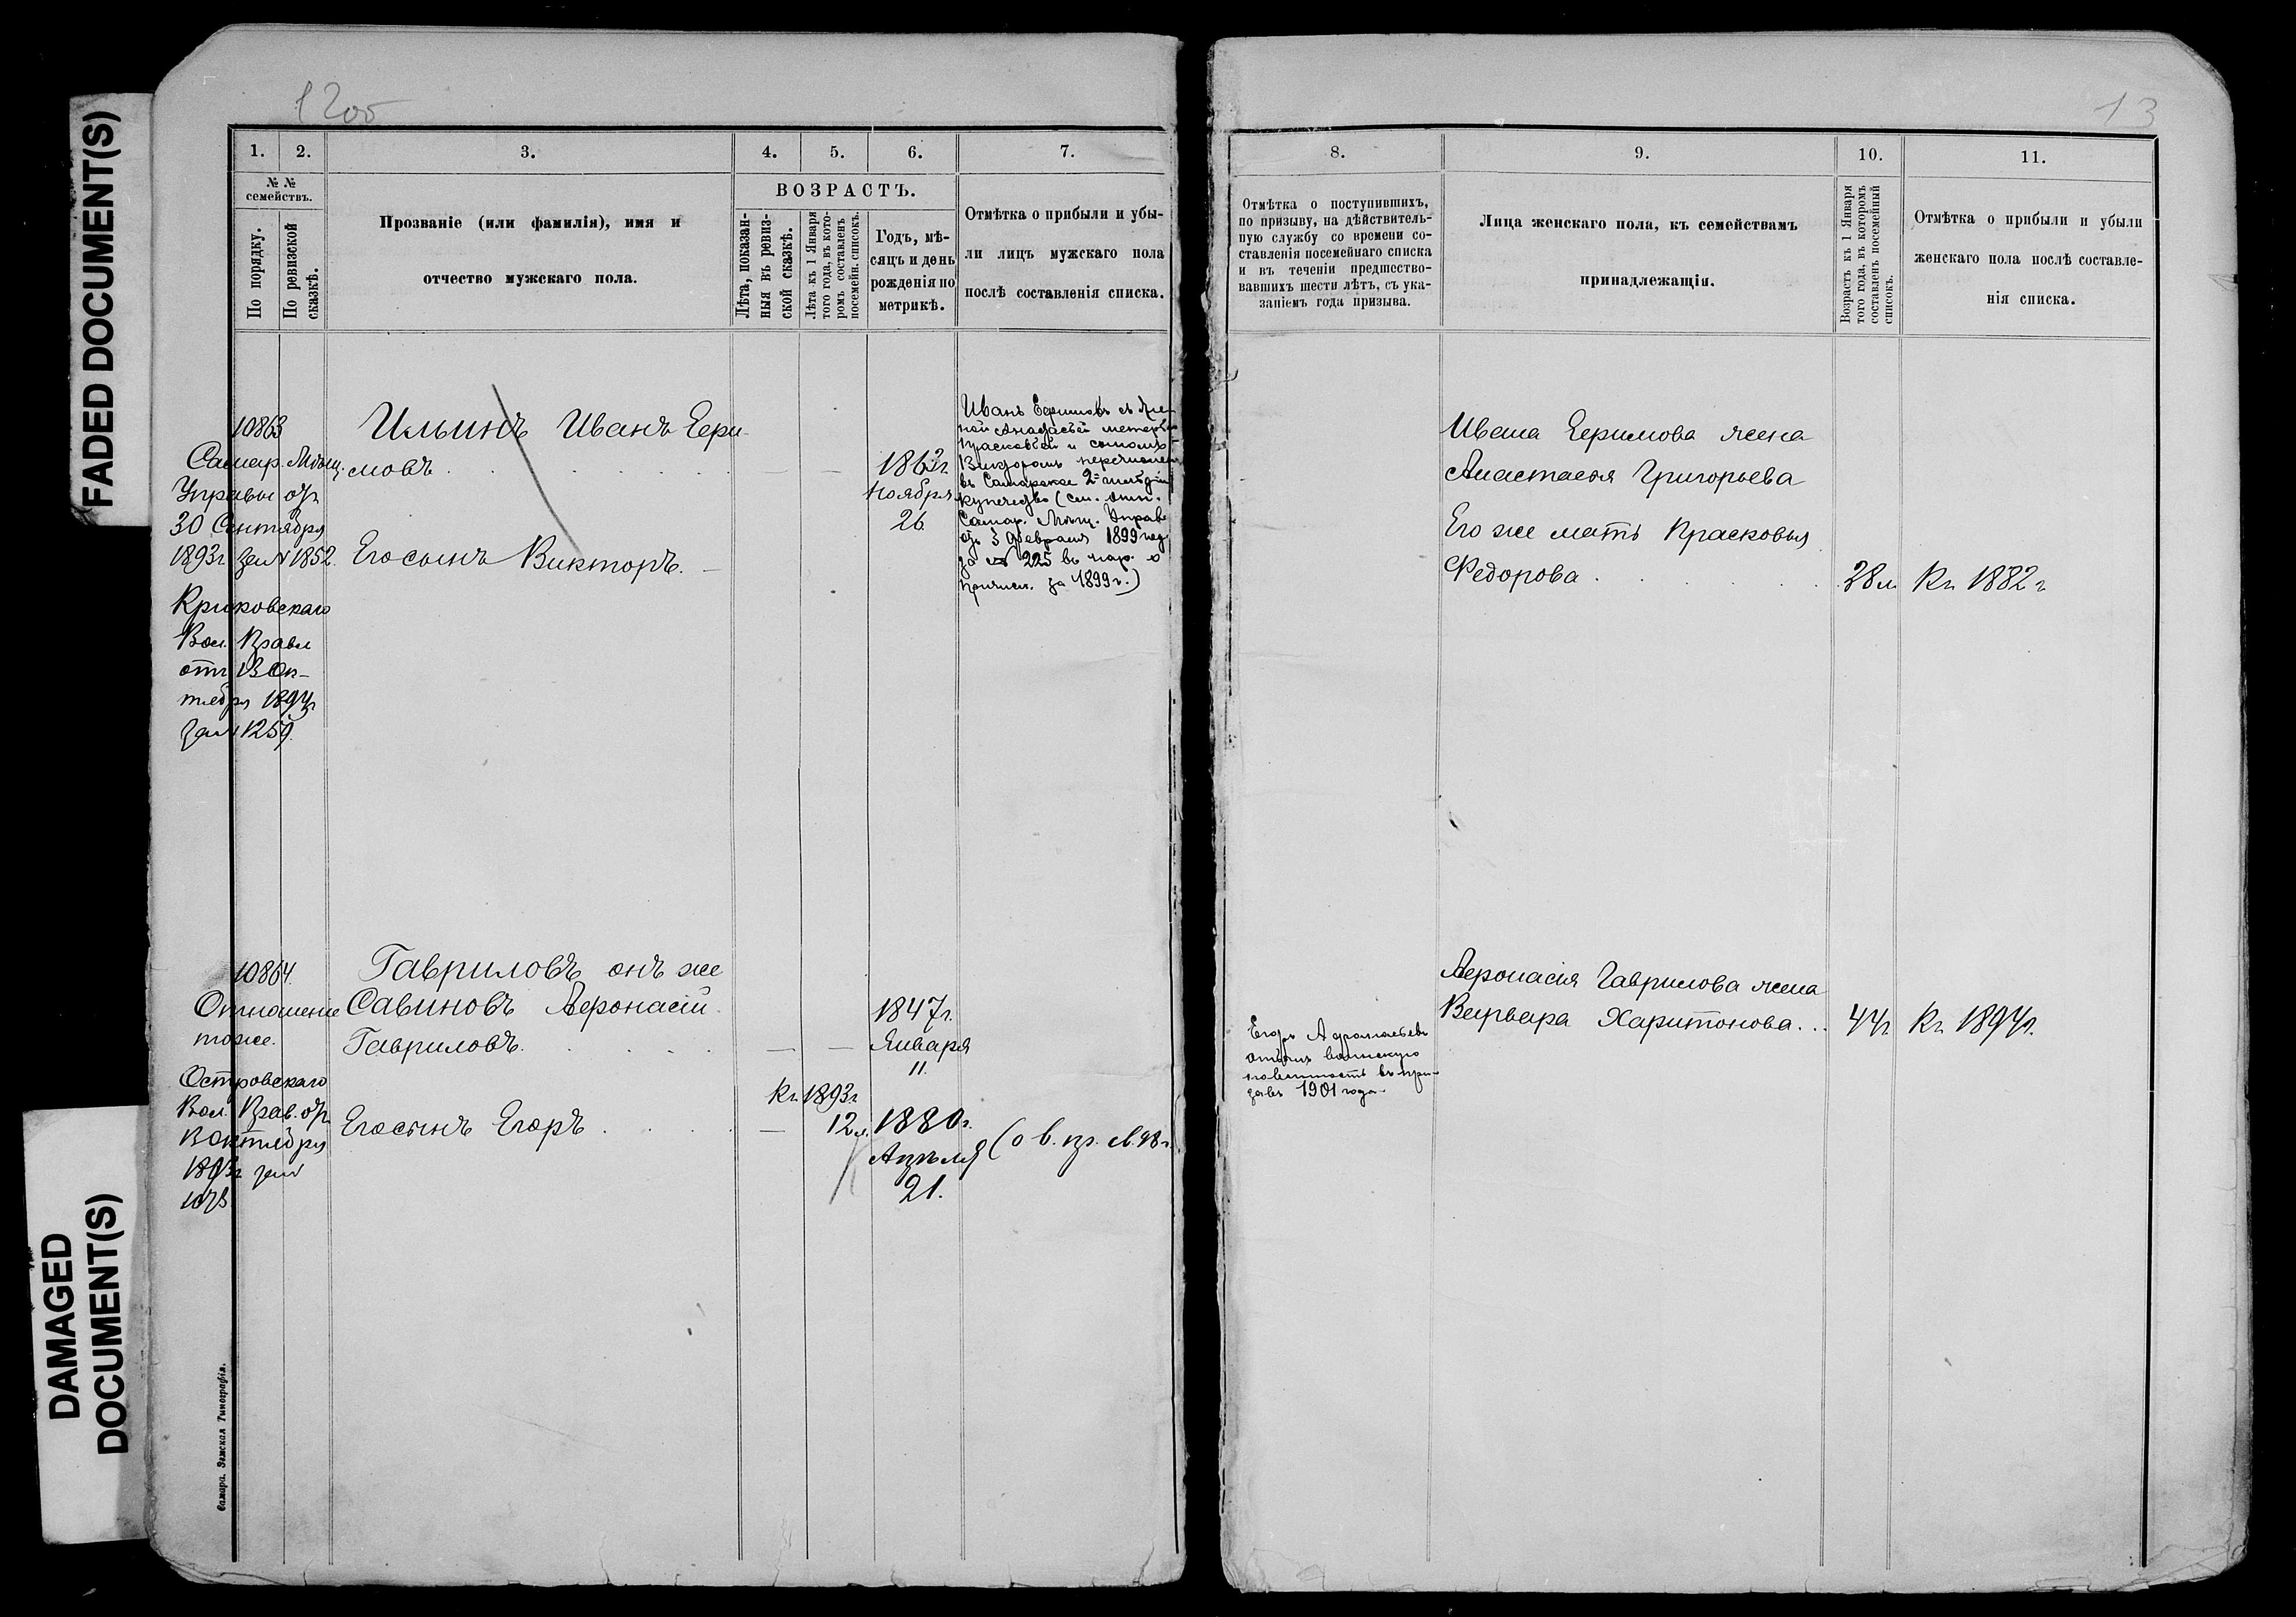 FADED DOCUMENT(S)
DAMAGED
DOCUMENT(S)
1200
1. 2. 3. 4. 5. 6. 7.
№ №
семействъ.
По порядку.
По ревизской
сказкѣ.
Прозваніе (или фамилія), имя и
отчество мужскаго пола.
ВОЗРАСТЪ.
Лѣта, показан-
ныя въ ревиз-
ской сказкѣ.
Лѣта къ 1 Января
того года, въ кото-
ромъ составленъ
посемейн. списокъ.
Годъ, мѣ-
сяцъ и день
рожденія по
метрикѣ.
Отмѣтка о прибыли и убы-
ли лицъ мужскаго пола
послѣ составленія списка.
10863
Самар. Мѣщ.
Управы отъ
30 Сентября
1893г. за № 1852.
Кряковскаго
Вол. Правл
отъ 13 Ок-
тября 1893г
за № 1259.
Ильинъ Иванъ Ефи-
мовъ
Его сынъ Викторъ.
1862г.
Ноября
26
Иванъ Ефимовъ съ же-
ной Анастасіей матерью
Прасковьей и сыномъ
Викторомъ перечислены
въ Самарское 2й гильдіи
купечество (см. отн.
Самар. Мѣщ. Управ
отъ 3 Февраля 1899 год
за № 225 въ нар. о
причисл. за 1899 г.)
10864.
Отношеніе
тоже.
Островскаго
Вол. Прав. отъ
Октября
1893г за №
1078
Гавриловъ онъ же
Савиновъ Афонасій
Гавриловъ.
1847г.
Января
11.
Къ 1893г
Его сынъ Егоръ
12 л. 1880г.
Апрѣля
21.
Самара. Земская Типографія.
13
8. 9. 10. 11.
Отмѣтка о поступившихъ,
по призыву, на дѣйствитель-
ную службу со времени со-
ставленія посемейнаго списка
и въ теченіи предшество-
вавшихъ шести лѣтъ, съ ука-
заніемъ года призыва.
Лица женскаго пола, къ семействамъ
принадлежащія.
Возрастъ къ 1 Января
того года, въ которомъ
составленъ посемейный
списокъ.
Отмѣтка о прибыли и убыли
женскаго пола послѣ составле-
нія списка.
Ивана Ефимова жена
Анастасья Григорьева
Его же мать Прасковья
Федорова 28 л. Къ 1882 г
Егоръ Афонасьевъ
отбылъ воинскую
повинность въ при-
зывъ 1901 года
Афонасія Гаврилова жена
Варвара Харитонова. 44г. Къ 1894г.